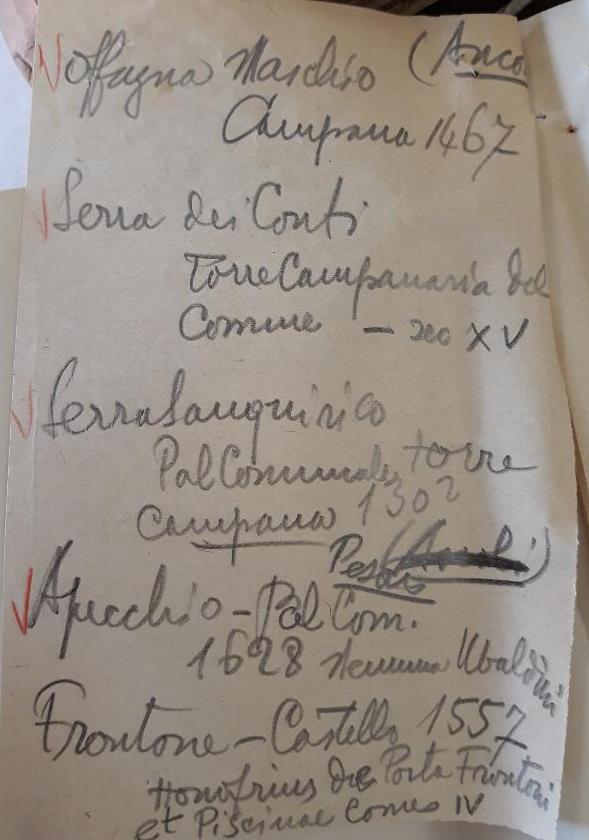 Offagna Maschio (Anco
Campana 1467
Serra dei Conti
Torre Campanaria del
Comune - sec XV
Serra San quirico
Pal Comunale, torre
campana 130?
Pesaro
Apecchio - Pal Com.
1628 stemma Ubaldini
Frontone - Castello 1557
Honofrius de Porta Frontoni
et Piscinae Comes IV